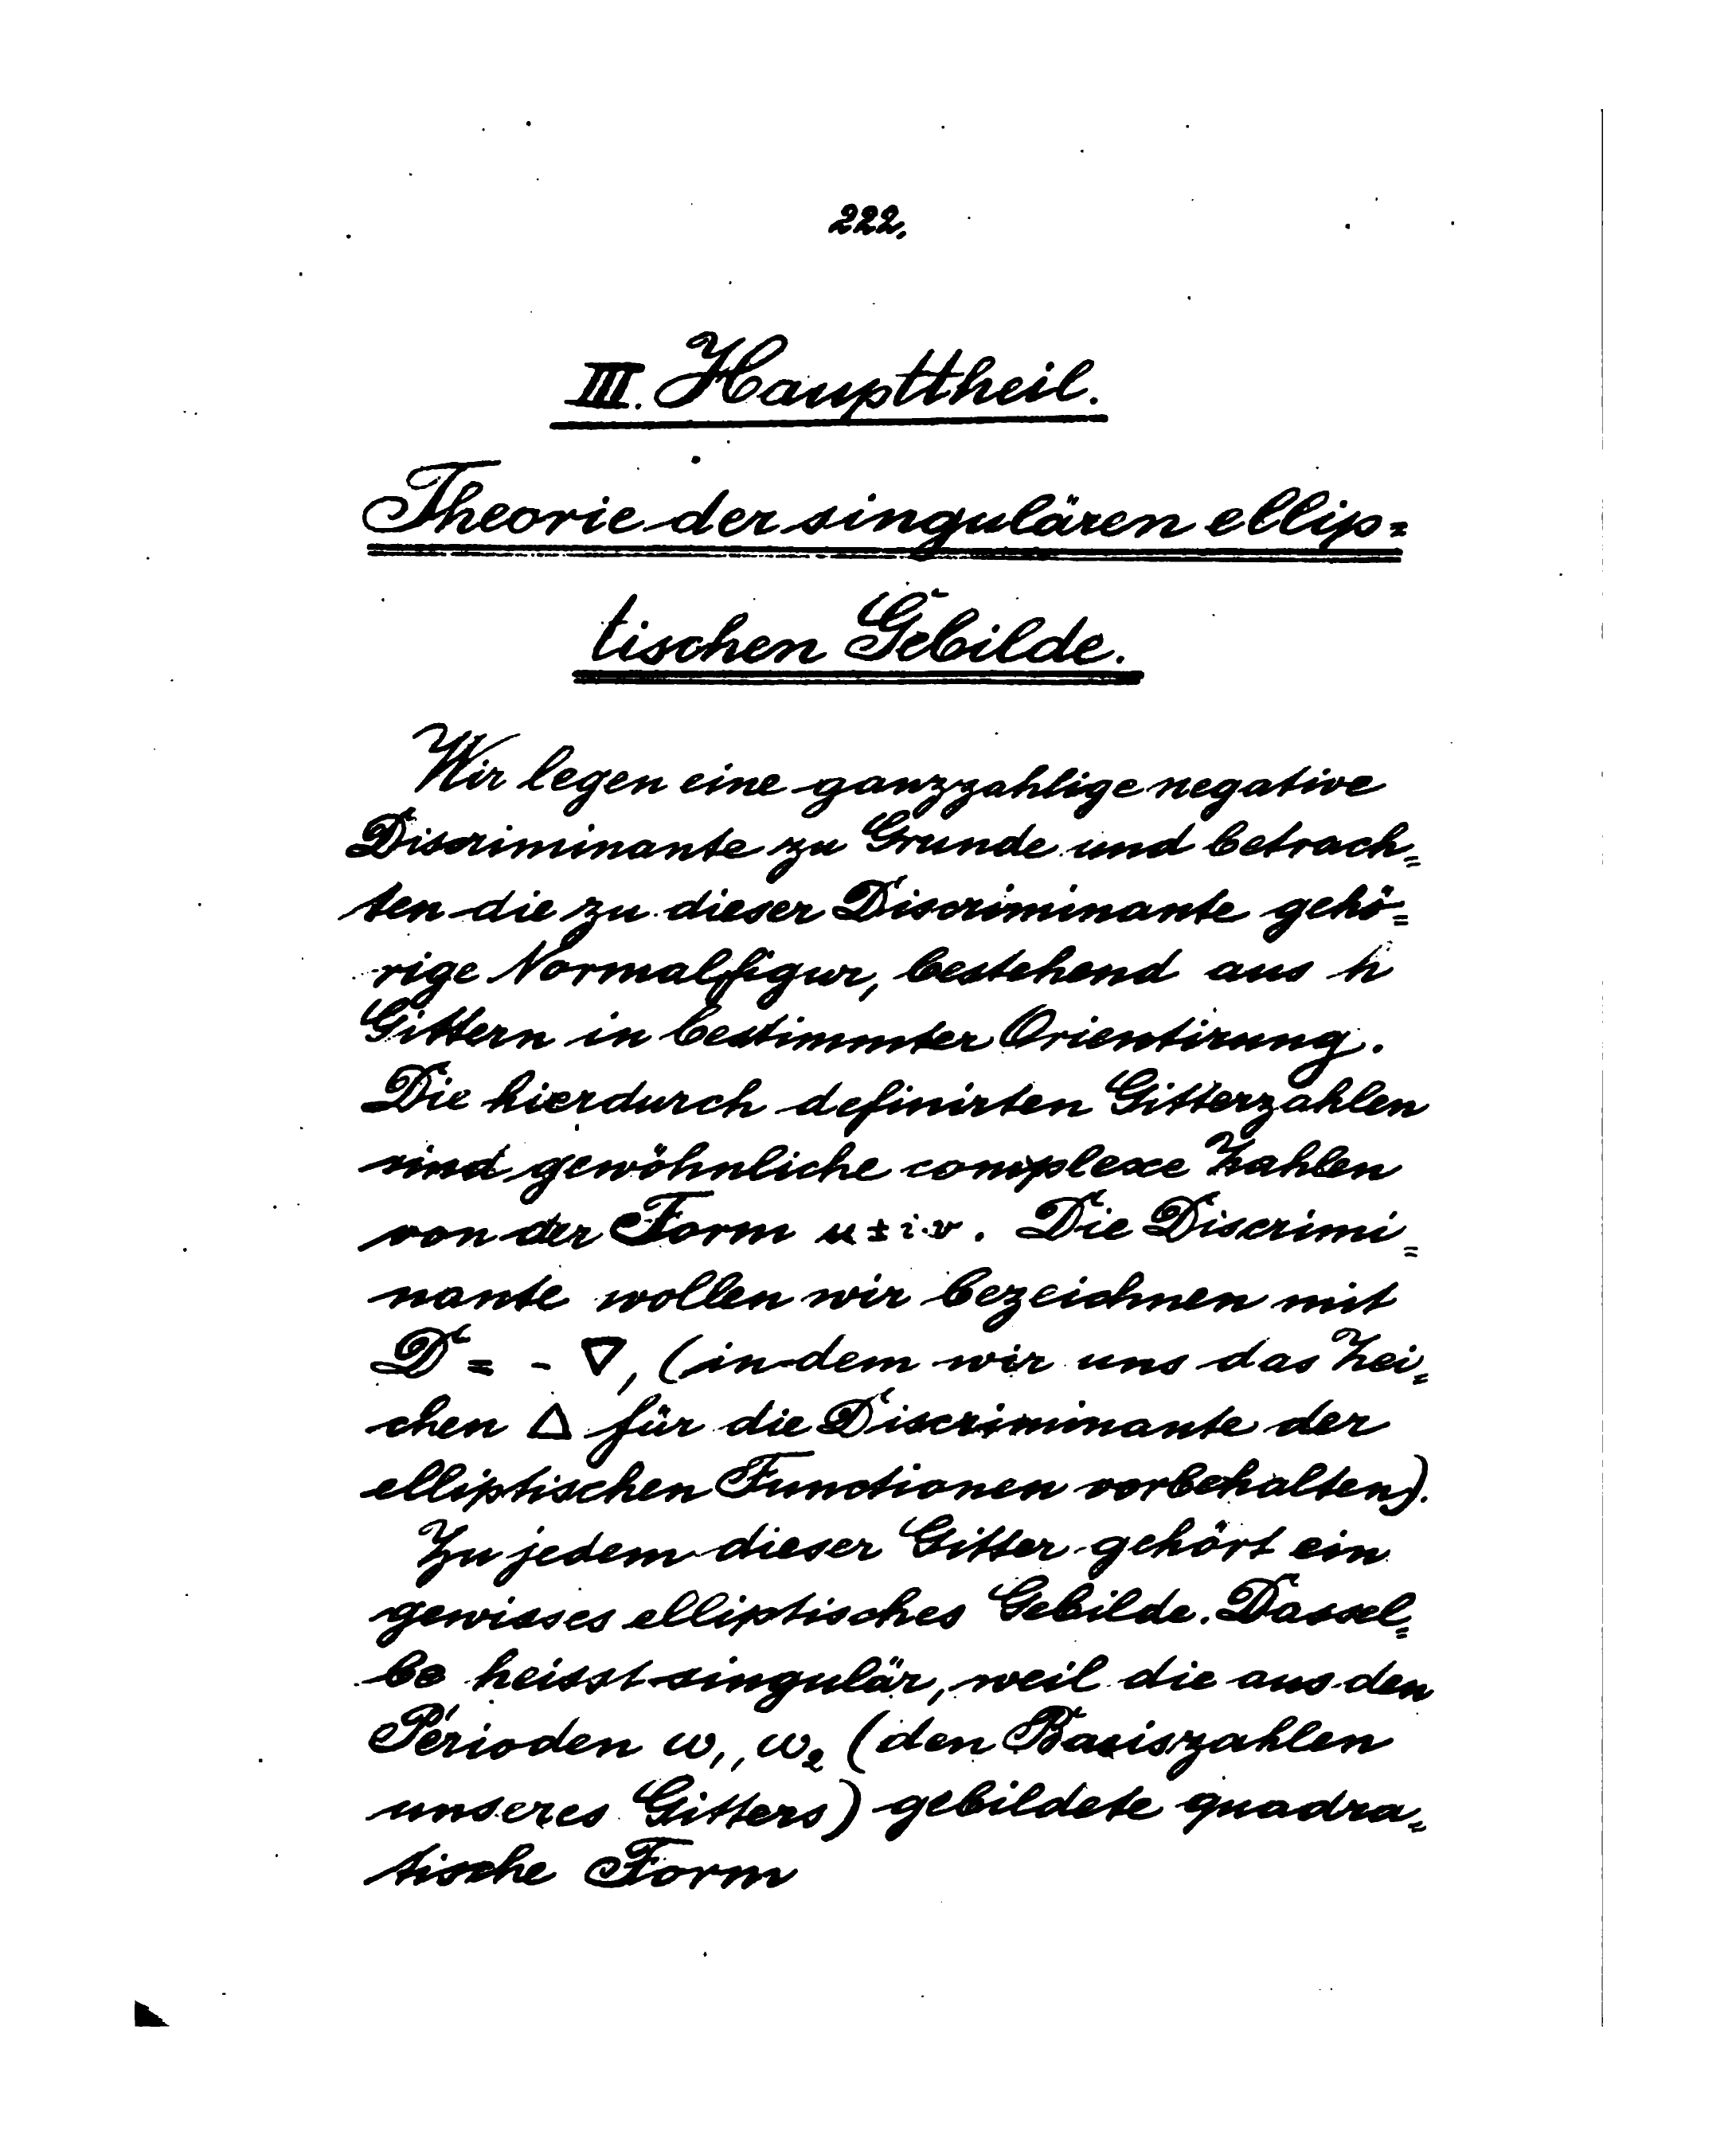 222.
III. Haupttheil.
Theorie der singulären ellip=
tischen Gebilde.
Wir legen eine ganzzahlige negative
Discriminante zu Grunde und betrach=
ten die zu dieser Discriminante gehö=
rige Normalfigur, bestehend aus h
Gittern in bestimmter Orientirung.
Die hierdurch definirten Gitterzahlen
sind gewöhnliche complexe Zahlen
von der Form u ± i v. Die Discrimi=
nante wollen wir bezeichnen mit
D = - ∇, (in dem wir uns das Zei=
chen Δ für die Discriminante der
elliptischen Functionen vorbehalten).
Zu jedem dieser Gitter gehört ein
gewisses elliptisches Gebilde. Dassel=
be heisst singulär, weil die aus den
Perioden ω₁, ω₂ (den Basiszahlen
unseres Gitters) gebildete quadra=
tische Form